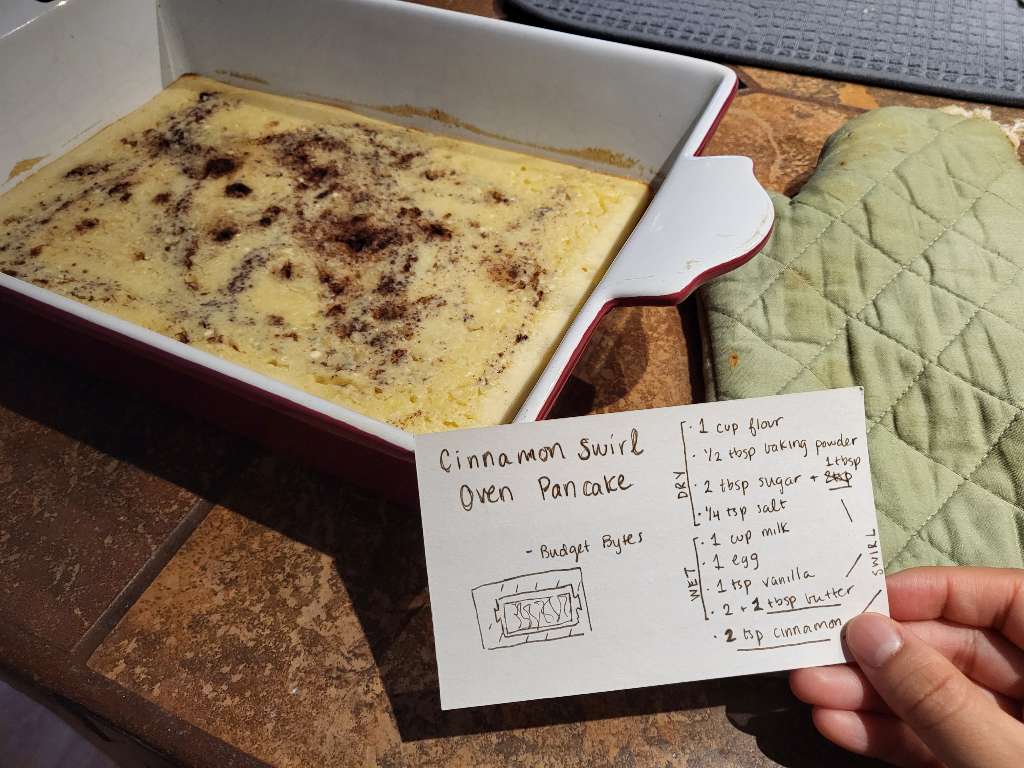 Cinnamon Swirl
Oven Pancake
- Budget Bytes
DRY
· 1 cup flour
· 1/2 tbsp baking powder
1 tbsp
· 2 tbsp sugar +
· 1/4 tsp salt
WET
· 1 cup milk
· 1 egg
· 1 tsp vanilla
· 2 + 1 tbsp butter
· 2 tsp cinnamon
SWIRL